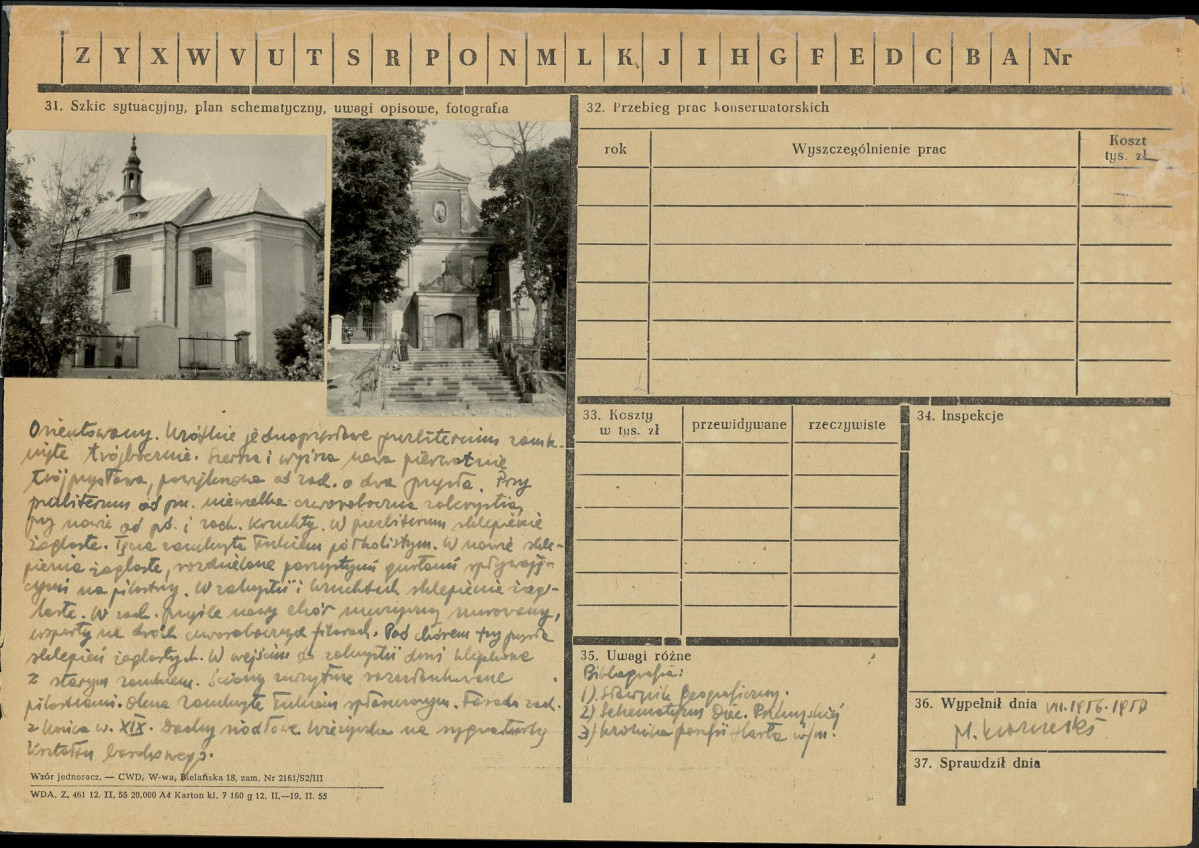 Z Y X W V U T S R P O N M L K J I H G F E D C B A Nr
31. Szkic sytuacyjny, plan schematyczny, uwagi opisowe, fotografia
Orientowany. Wąskie jednoprzęsłowe prezbiterium zamk-
nięte trójbocznie. Szersza i wyższa nawa pierwotnie
trójprzęsłowa, od zach. o dwa przęsła. Przy
prezbiterium od pn. niewielka czworoboczna zakrystia,
przy nawie od pd. i zach. kruchty. W prezbiterium sklepienie
żaglaste. Tęcza zamknięta łukiem półkolistym. W nawie skle-
pienia żaglaste, rozdzielone parzystymi gurtami spływają-
cymi na pilastry. W zakrystii i kruchtach sklepienie żagl-
laste. W zach. przęśle nawy chór muzyczny murowany,
wsparty na dwóch czworobocznych filarach. Pod chórem trzy przęsła
sklepień żaglastych. W wejściu do zakrystii drzwi klepkowe
z starym zamkiem. Ściany zewnętrzne rozczłonkowane
pilastrami. Okna zamknięte łukiem spłaszczonym. Fasada zach.
z końca w. XIX. Dachy siodłowe. Wieżyczka na sygnaturkę
kształtu barokowego.
Wzór jednoracz. — CWD, W-wa, Bielańska 18, zam. Nr 2161/S2/III
WDA. Z. 461 12. II. 55 20.000 A4 Karton kl. 7 160 g 12. II.—19. II. 55
32. Przebieg prac konserwatorskich
rok
Wyszczególnienie prac
Koszt
tys. zł
33. Koszty
w tys. zł
przewidywane
rzeczywiste
34. Inspekcje
35. Uwagi różne
Bibliografia:
1) Słownik Geograficzny.
2) Schematyzm Diec. Przemyskiej
3) Kronika parafii Harta w/m.
36. Wypełnił dnia VII.1956.
37. Sprawdził dnia